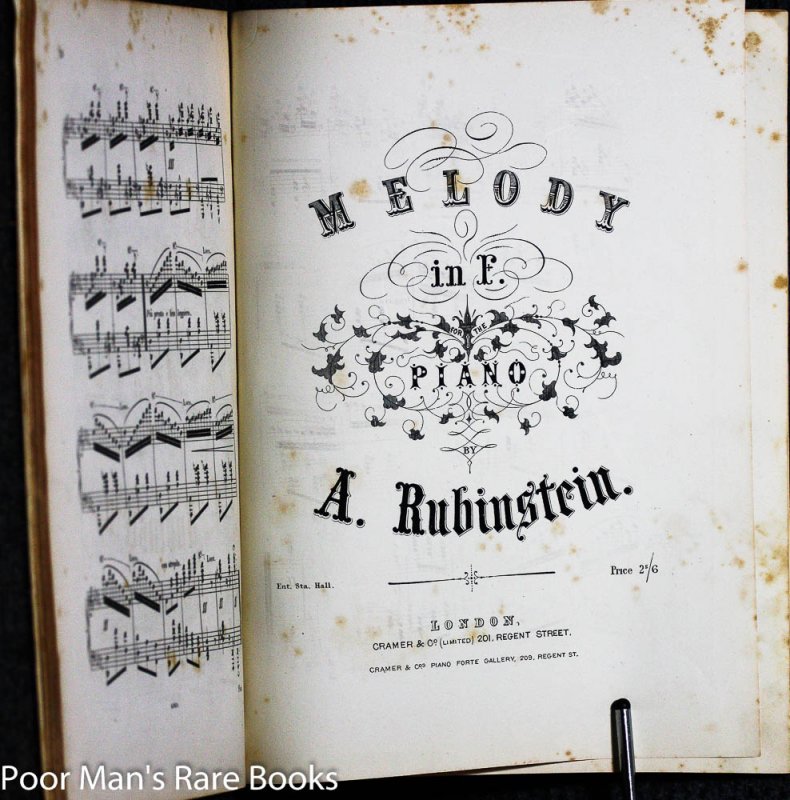 Più presto e ben legato.
MELODY
in F.
FOR THE
PIANO
BY
A. Rubinstein.
Ent. Sta. Hall.
Price 2s/6
LONDON,
CRAMER & Co (LIMITED) 201, REGENT STREET.
CRAMER & Cos PIANO FORTE GALLERY, 209, REGENT ST.
Poor Man's Rare Books